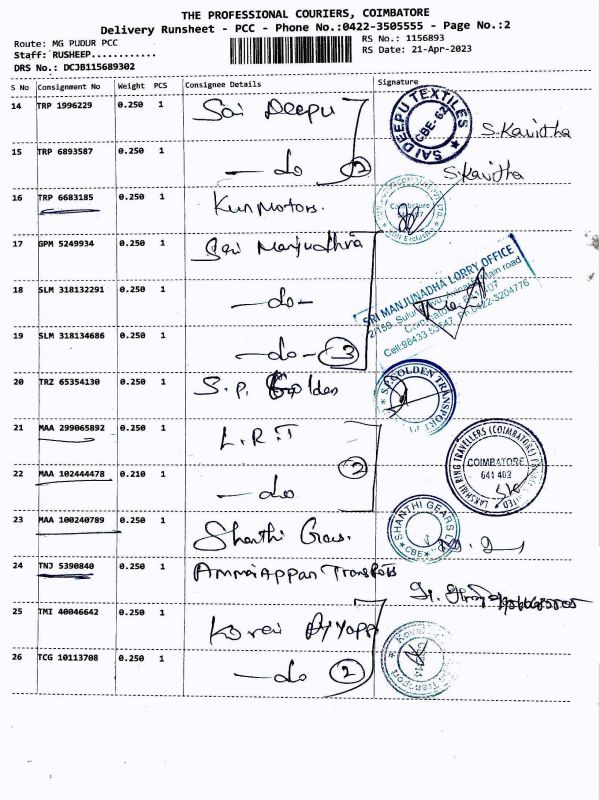 THE PROFESSIONAL COURIERS, COIMBATORE
Delivery Runsheet - PCC - Phone No.:0422-3505555 - Page No.:2
Route: MG PUDUR PCC
RS No.: 1156893
Staff: RUSHEEP............
RS Date: 21-Apr-2023
DRS No.: DCJB115689302
S No Consignment No Weight PCS Consignee Details Signature
14 TRP 1996229 0.250 1 Sai Deepu
SAI DEEPU TEXTILES CBE-62
S.Kavidha
15 TRP 6893587 0.250 1 —do 2
S.Kavidha
16 TRP 6683185 0.250 1 Kun Motors.
17 GPM 5249934 0.250 1 Sai Manjudhra
SRI MANJUNADHA LORRY OFFICE
18 SLM 318132291 0.250 1 —do—
19 SLM 318134686 0.250 1 —do— 3
20 TRZ 65354130 0.250 1 S.P. Golden
S.P. GOLDEN TRANSPORT
21 MAA 299065892 0.250 1 L.R.T
22 MAA 102444478 0.210 1 —do 2
LAKSHMI RING TRAVELLERS (COIMBATORE)
COIMBATORE
641 402
23 MAA 100240789 0.250 1 Shanthi Gears.
SHANTHI GEARS CBE
24 TNJ 5390840 0.250 1 Ammaiappan Transports
25 TMI 40046642 0.250 1 Kovai Ayyapp
26 TCG 10113708 0.250 1 —do 2